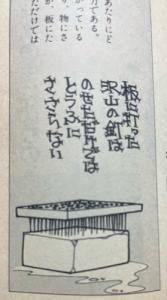 あたりにど
力である。
り、物にさ
がっている
が、板にた
ただけでは
板に打った
沢山の釘は
のせただけでは
とうふに
ささらない